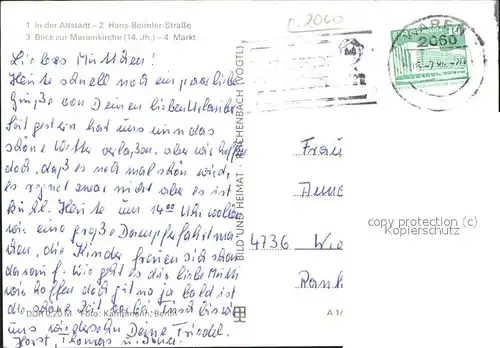 1 In der Altstadt - 2 Hans-Beimler-Straße
3 Blick zur Marienkirche (14. Jh.) - 4 Markt
c. 2060
WAREN
2060
Liebes Muttilein!
Heute schnell noch ein paar liebe
Grüße von Deinen lieben Urlaubern.
Seit gestern hat uns nun das
schöne Wetter verlaßen, aber wir hoffen
doch, daß es noch mal schön wird,
es regnet zwar nicht aber es ist
kühl. Heute um 14⁰⁰ Uhr wollen
wir eine große Dampferfahrt ma
chen, die Kinder freuen sich schon
darauf. Wie geht es die liebe Mutti
wir hoffen doch gut na ja bald ist
die schöne Zeit vorbei und bis wir
uns wiedersehn Deine Friedel.
Horst, Thomas u.
DDR 0,20 M Foto: Kampmann, Berlin
BILD UND HEIMAT REICHENBACH (VOGTL)
Frau
4736 Wie
A 1/
copyright protection (c)
Kopierschutz